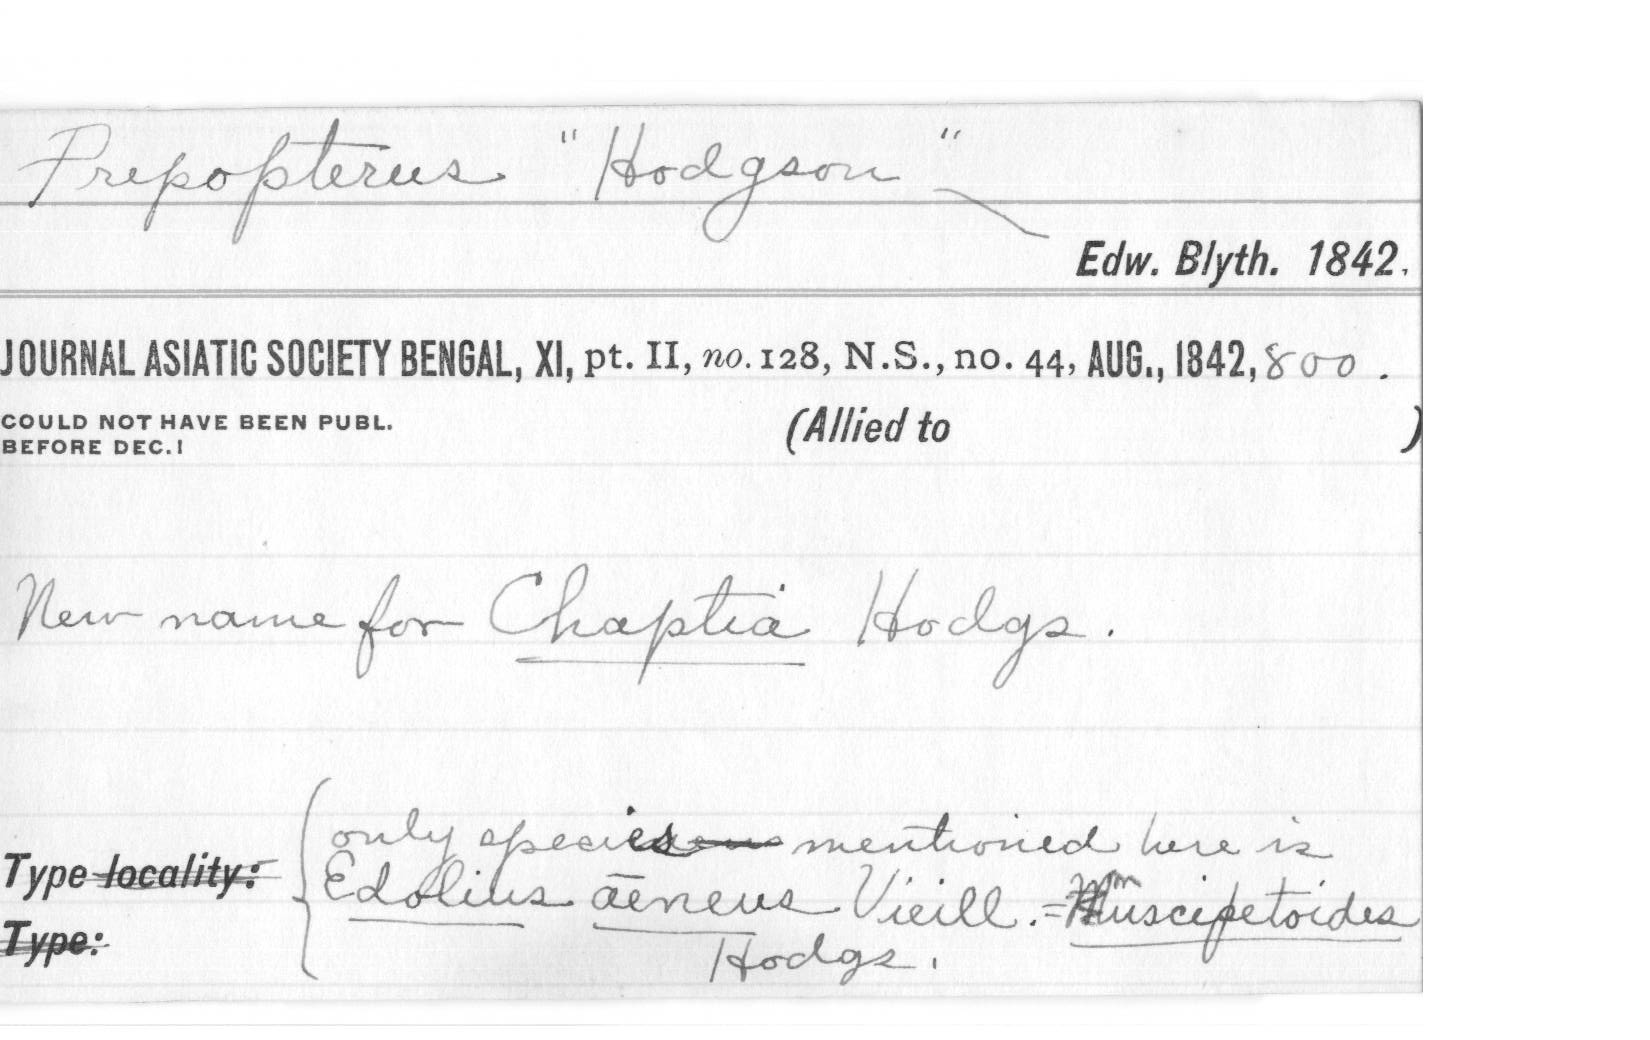 Prepopterus "Hodgson"
Edw. Blyth. 1842.
JOURNAL ASIATIC SOCIETY BENGAL, XI, pt. II, no. 128, N.S., no. 44, AUG., 1842, 800.
COULD NOT HAVE BEEN PUBL.
BEFORE DEC. 1
(Allied to )
New name for Chaptia Hodgs.
only species mentioned here is
Type locality: Edolius aeneus Vieill. = Muscipetoides
Type: Hodgs.